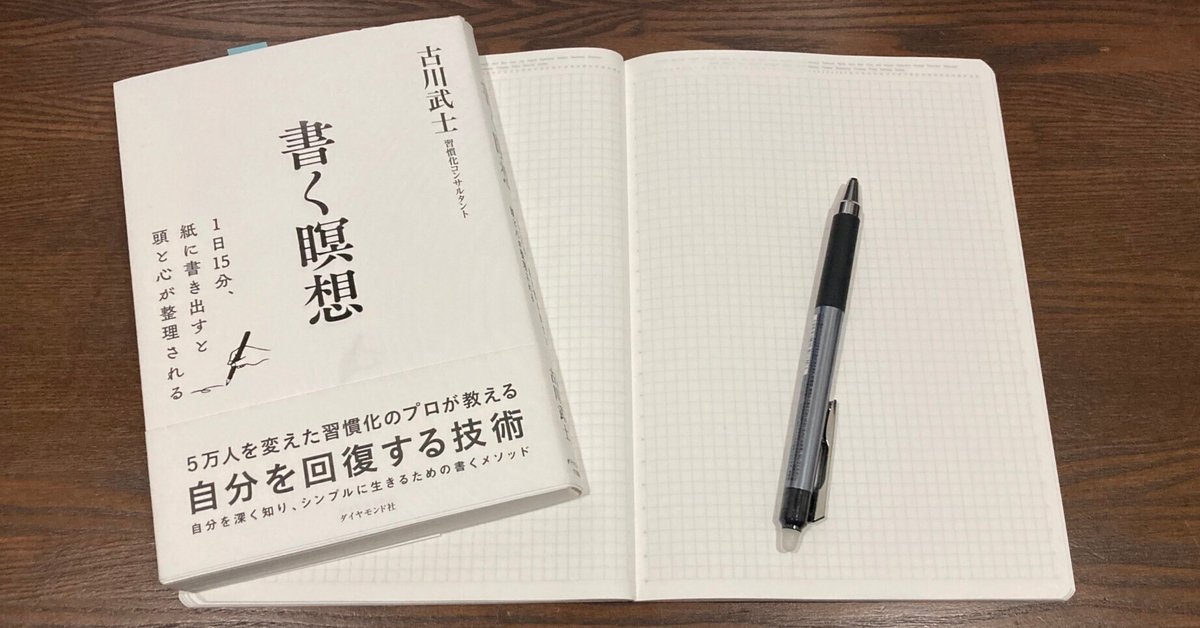 古川武士
習慣化コンサルタント
書く瞑想
1日15分、
紙に書き出すと
頭と心が整理される
5万人を変えた習慣化のプロが教える
自分を回復する技術
自分を深く知り、シンプルに生きるための書くメソッド
ダイヤモンド社